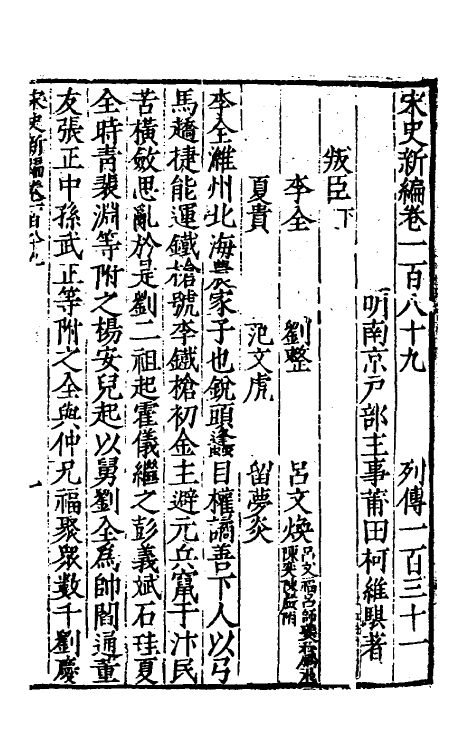 宋史新編卷一百八十九　列傳一百三十一
明南京戶部主事莆田柯維騏著
叛臣下
李全　劉整　呂文煥
夏貴　范文虎　留夢炎
李全濰州北海農家子也銳頭蠭目權譎善下人以弓
馬趫捷能運鐵槍號李鐵槍初金主避元兵竄于汴民
苦橫斂思亂於是劉二祖起霍儀繼之彭義斌石珪夏
全時青裴淵等附之楊安兒起以舅劉全為帥閻通董
友張正中孫武正等附之全與仲兄福聚眾數千劉慶
宋史新編卷一百八十九
一